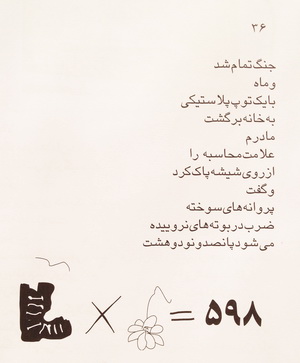 ۳۶
جنگ تمام شد
و ماه
با یک توپ پلاستیکی
به خانه برگشت
مادرم
علامت محاسبه را
از روی شیشه پاک کرد
و گفت
پروانه‌های سوخته
ضرب در بوته‌های نروییده
می‌شود پانصد و نود و هشت
× = ۵۹۸